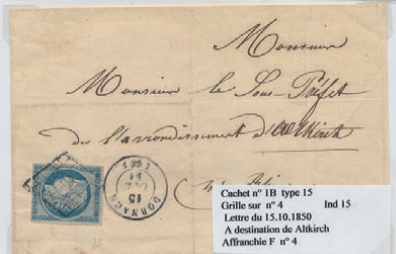 Monsieur
Monsieur le Sous-Préfet
de l'arrondissement d'Altkirch
DORNACH
15
OCT
Cachet n° 1B type 15
Grille sur n° 4 Ind 15
Lettre du 15.10.1850
A destination de Altkirch
Affranchie F n° 4